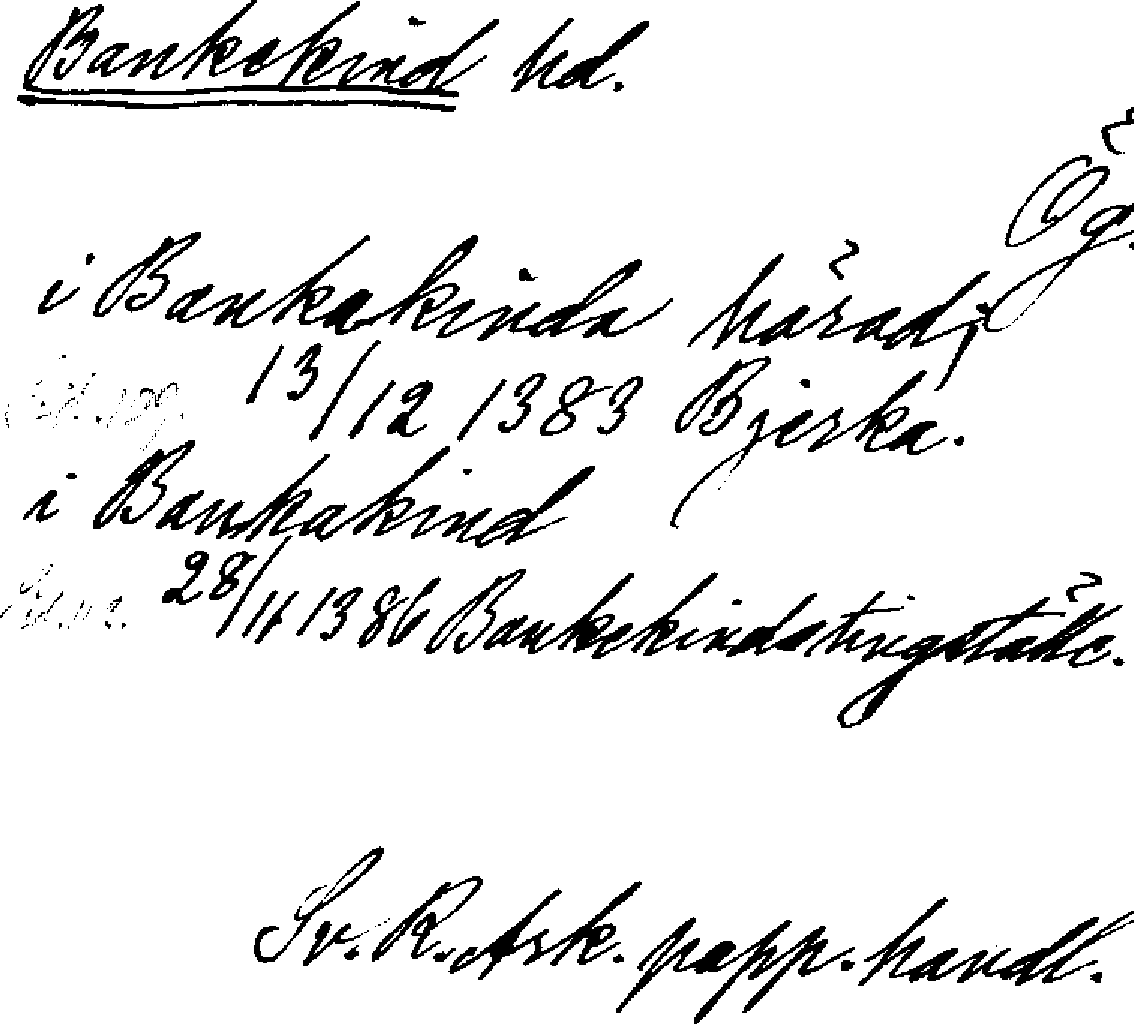 Bankekind hd.
Ög.
i Bankakinda härad;
13/12 1383 Bjerka.
i Bankakind
28/11 1386 Bankekindstingställe.
Sv. R. Ark. papp. handl.